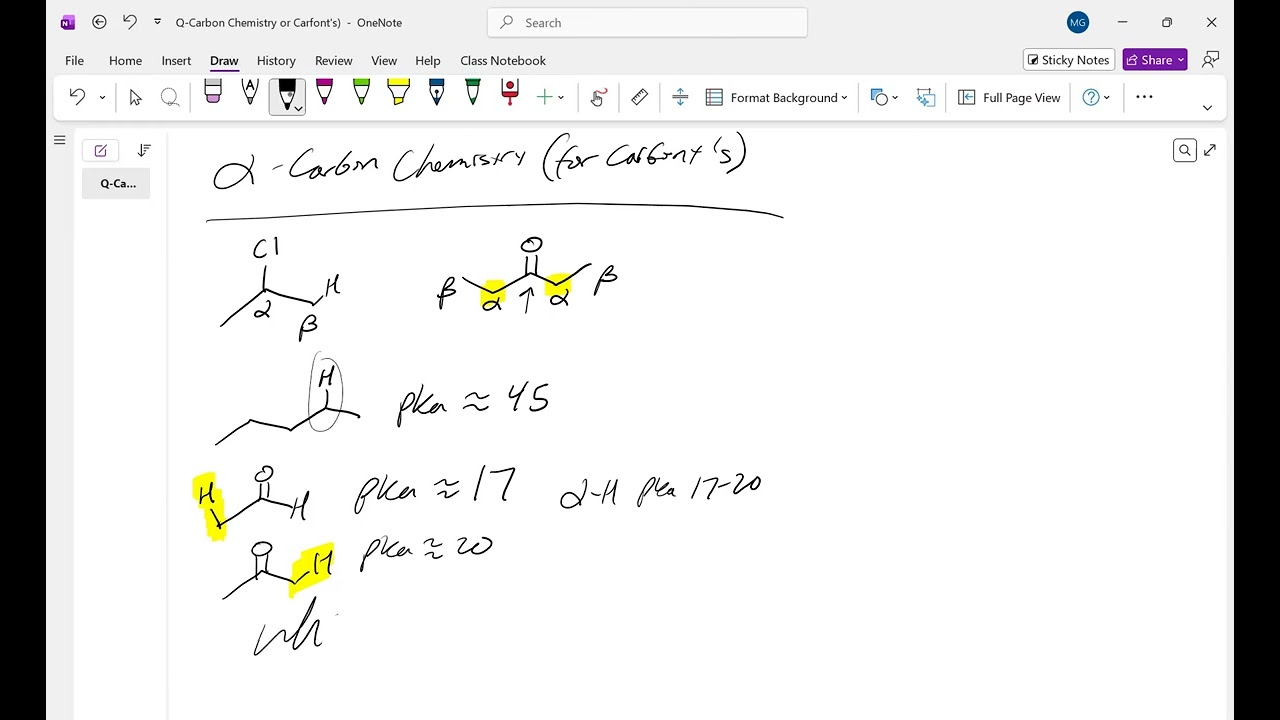 Q-Carbon Chemistry or Carfont's) - OneNote
Search
MG
File Home Insert Draw History Review View Help Class Notebook
Sticky Notes Share
Format Background Full Page View
Q-Ca...
α-Carbon Chemistry (for Carbont's)
Cl
H
α
β
O
β α ↑ α β
H
pka ≈ 45
O
H H pka ≈ 17 α-H pka 17-20
O
H pka ≈ 20